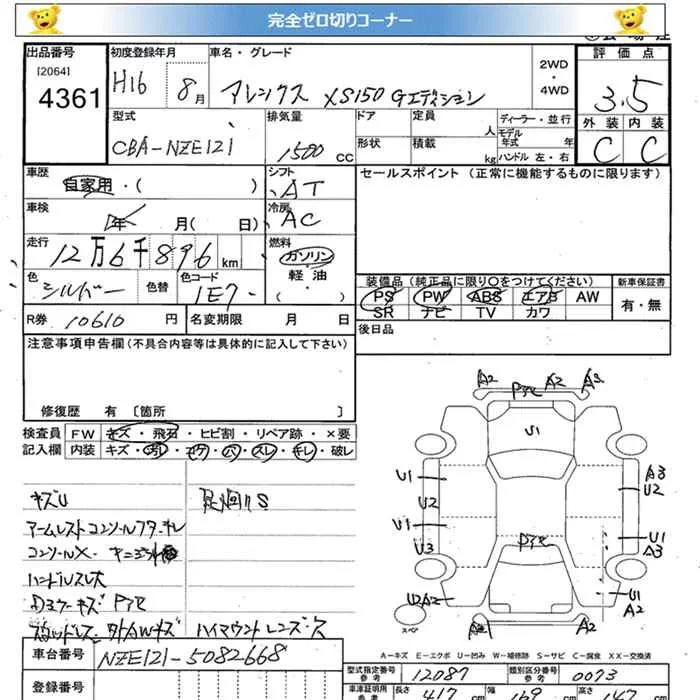 完全ゼロ切りコーナー
出品番号 初度登録年月 車名・グレード 2WD・4WD 評価点
[2064]
4361 H16 8月 アレックス XS150 Gエディション 3.5
型式 排気量 ドア 定員 人 ディーラー・並行 外装 内装
CBA-NZE121 1500 CC 形状 積載 kg モデル年式 年 ハンドル 左・右 C C
車歴 シフト セールスポイント (正常に機能するものに限ります)
自家用・( ) AT
車検 年 月( 日) 冷房 AC
走行 12万6千896 km 燃料 ガソリン 軽油 ( ・ )
色 シルバー 色替 色コード 1E7
装備品 (純正品に限り〇をつけてください) 新車保証書
PS PW ABS エアB AW 有・無
SR ナビ TV カワ
R券 10610 円 名変期限 月 日 後日品
注意事項申告欄(不具合内容等は具体的に記入して下さい)
修復歴 有 〔箇所 〕
検査員 FW キズ・飛石・ヒビ割・リペア跡・×要
記入欄 内装 キズ・汚レ・コゲ・穴・スレ・キレ・破レ
キズU
アームレストコンソールフタ キレ
ハンドルスレ大
ハイマウントレンズ
車台番号 NZE121-5082668
登録番号
A2 A2 A3
U1
U1 A3
U2 U2
U1 U1
U3 A3
U2 A2 U1
A2
スペア A2
A-キズ E-エクボ U-凹み W-補修跡 S-サビ C-腐食 XX-交換済
型式指定番号 参考 12087 類別区分番号 参考 0073
車庫証明用 参考 長さ 417 cm 幅 169 cm 高さ 147 cm